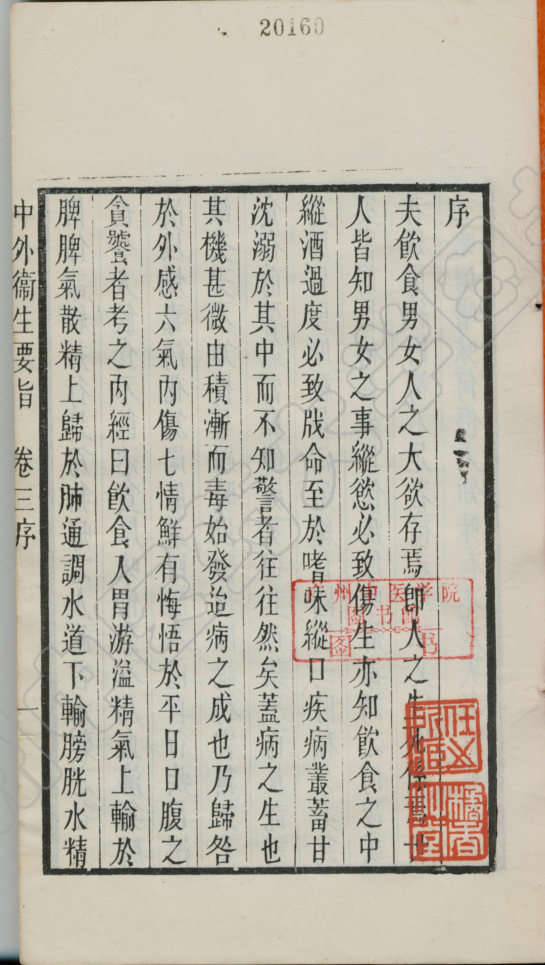 20160
序
夫飲食男女人之大欲存焉卽人之生死係焉
人皆知男女之事縱慾必致傷生亦知飲食之中
縱酒過度必致戕命至於嗜味縱口疾病叢蓄甘
沈溺於其中而不知警者往往然矣蓋病之生也
其機甚微由積漸而毒始發迨病之成也乃歸咎
於外感六氣內傷七情鮮有悔悟於平日口腹之
貪饕者考之內經曰飮食入胃游溢精氣上輸於
脾脾氣散精上歸於肺通調水道下輸膀胱水精
中外衞生要旨 卷三序 一
广州中医学院
圖书館
图书